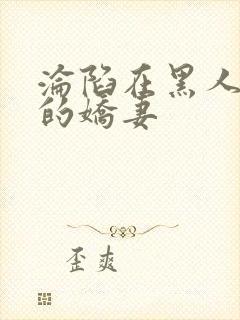 淪陷在黑人
的嬌妻
歪爽